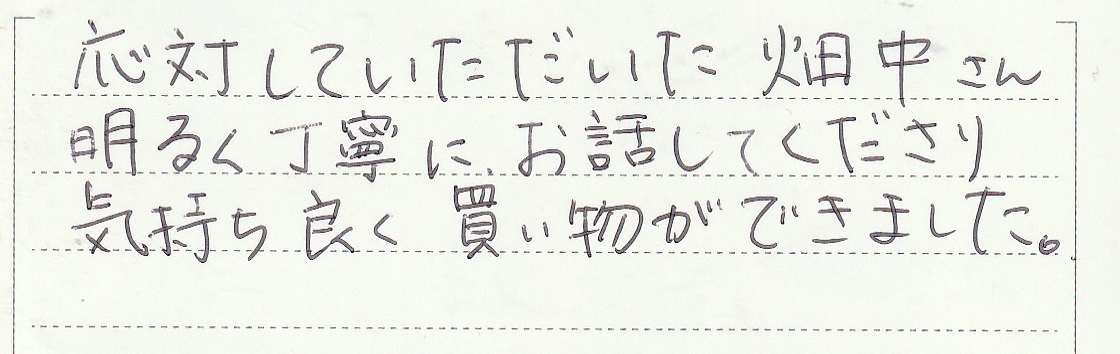 応対していただいた畑中さん
明るく丁寧にお話してくださり
気持ち良く買い物ができました。